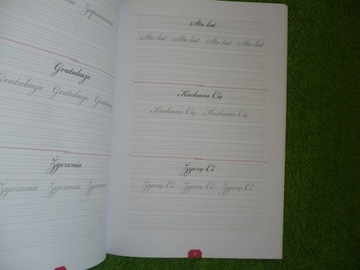 Zapomnienia
Gratulacje
Gratulacje Gratulacje Gratulacje
Życzenia
Życzenia Życzenia Życzenia
Sto lat
Sto lat Sto lat Sto lat Sto lat
Kocham Cię
Kocham Cię Kocham Cię
Życzę Ci
Życzę Ci Życzę Ci Życzę Ci